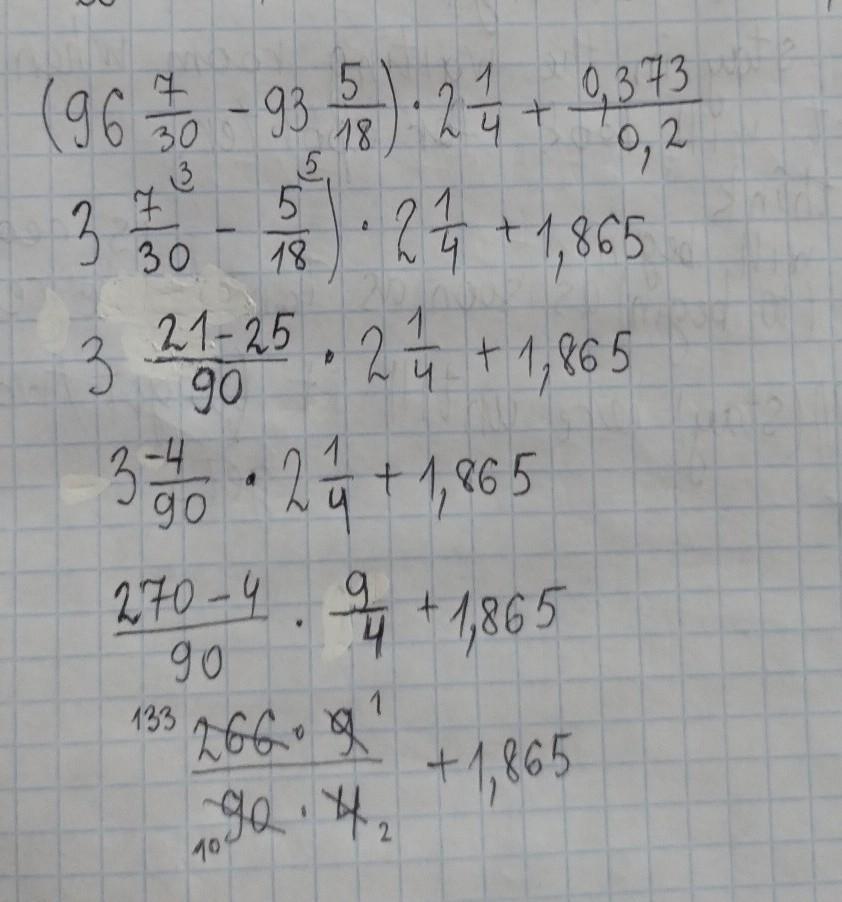 (96 7/30 - 93 5/18) · 2 1/4 + 0,373/0,2
3 7/30 (3 - 5/18 (5 ) · 2 1/4 + 1,865
3 21-25/90 · 2 1/4 + 1,865
3 -4/90 · 2 1/4 + 1,865
270-4/90 · 9/4 + 1,865
133 266 · 9 1 / 10 90 · 4 2 + 1,865